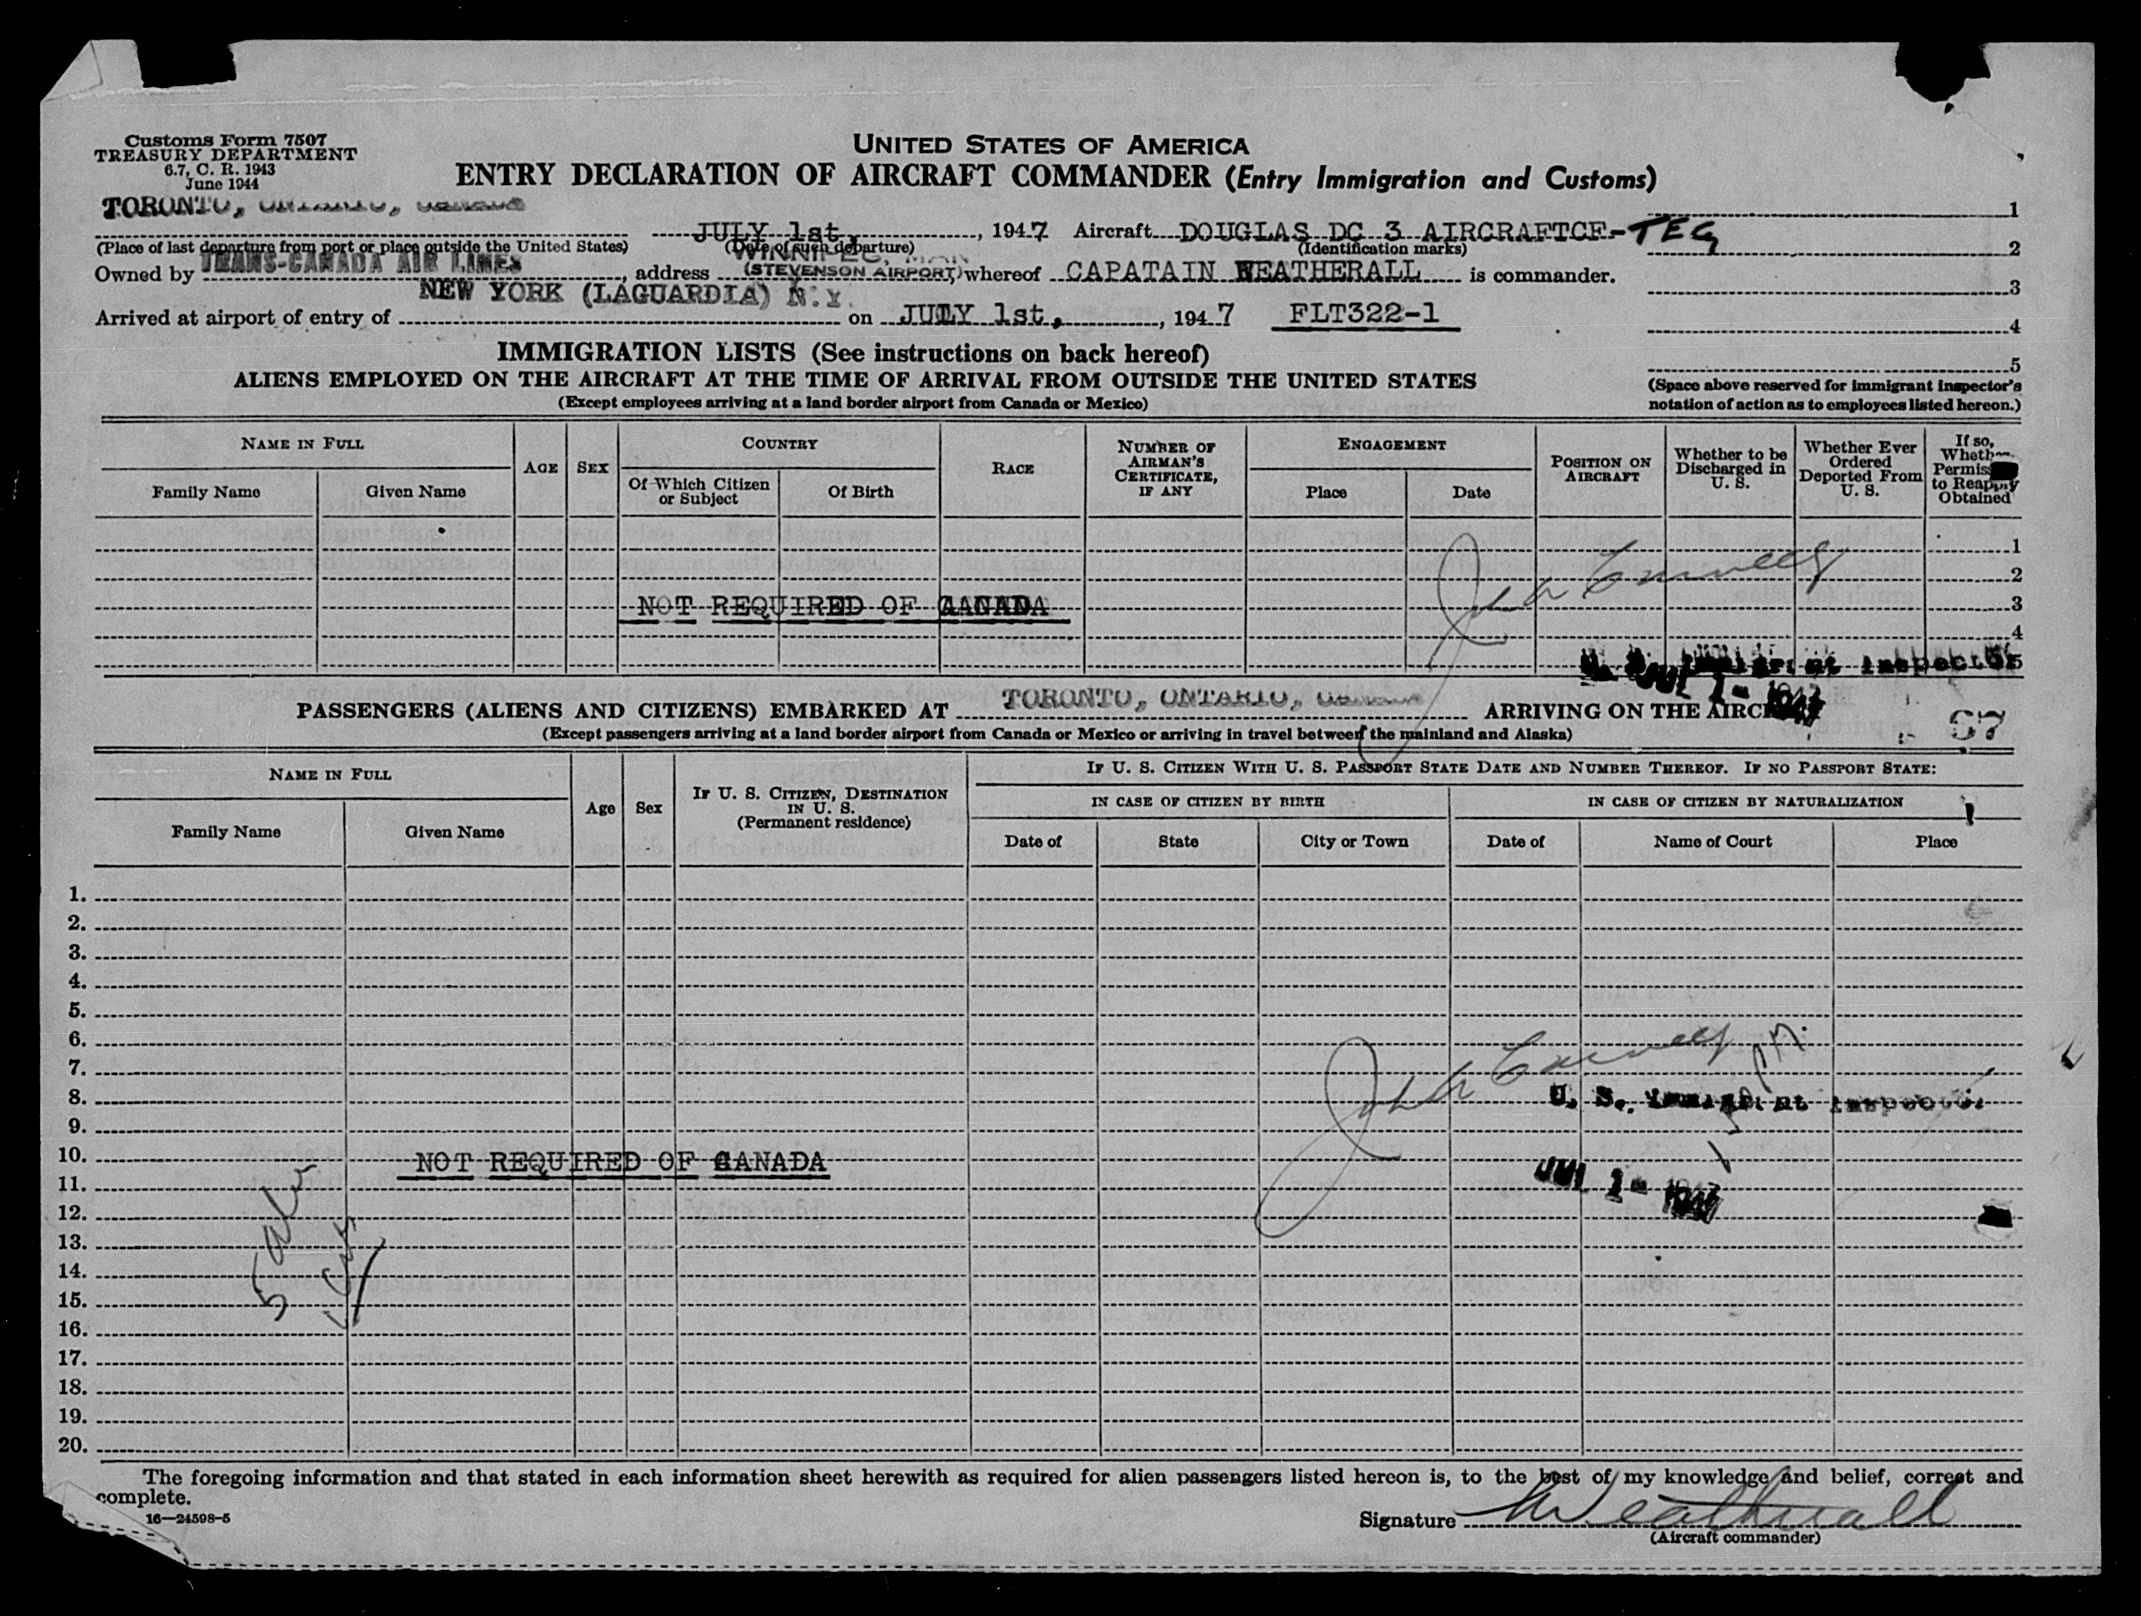 Customs Form 7507
TREASURY DEPARTMENT
6.7, C. R. 1943
June 1944
UNITED STATES OF AMERICA
ENTRY DECLARATION OF AIRCRAFT COMMANDER (Entry Immigration and Customs)
TORONTO, ONTARIO, CANADA JULY 1st, 1947 Aircraft DOUGLAS DC 3 AIRCRAFTCF-TEG 1
(Place of last departure from port or place outside the United States) (Date of such departure) (Identification marks) 2
WINNIPEG, MAN
Owned by TRANS-CANADA AIR LINES, address (STEVENSON AIRPORT) whereof CAPATAIN WEATHERALL is commander. 3
NEW YORK (LAGUARDIA) N.Y.
Arrived at airport of entry of on JULY 1st, 1947 FLT322-1 4
IMMIGRATION LISTS (See instructions on back hereof) 5
ALIENS EMPLOYED ON THE AIRCRAFT AT THE TIME OF ARRIVAL FROM OUTSIDE THE UNITED STATES
(Except employees arriving at a land border airport from Canada or Mexico)
(Space above reserved for immigrant inspector's
notation of action as to employees listed hereon.)
NAME IN FULL AGE SEX COUNTRY RACE NUMBER OF AIRMAN'S CERTIFICATE, IF ANY ENGAGEMENT POSITION ON AIRCRAFT Whether to be Discharged in U. S. Whether Ever Ordered Deported From U. S. If so, Whether Permission to Reapply Obtained
Family Name Given Name Of Which Citizen or Subject Of Birth Place Date
1
2
NOT REQUIRED OF CANADA 3
4
5
U. S. Immigrant Inspector
JUL 1 - 1947
PASSENGERS (ALIENS AND CITIZENS) EMBARKED AT TORONTO, ONTARIO, CANADA ARRIVING ON THE AIRCRAFT
(Except passengers arriving at a land border airport from Canada or Mexico or arriving in travel between the mainland and Alaska)
67
NAME IN FULL Age Sex IF U. S. CITIZEN, DESTINATION IN U. S. (Permanent residence) IF U. S. CITIZEN WITH U. S. PASSPORT STATE DATE AND NUMBER THEREOF. IF NO PASSPORT STATE:
IN CASE OF CITIZEN BY BIRTH IN CASE OF CITIZEN BY NATURALIZATION
Family Name Given Name Date of State City or Town Date of Name of Court Place
1.
2.
3.
4.
5.
6.
7.
8. U. S. Immigrant Inspector
9.
10. NOT REQUIRED OF CANADA
11. JUL 1 - 1947
12.
13.
14.
15.
16.
17.
18.
19.
20.
The foregoing information and that stated in each information sheet herewith as required for alien passengers listed hereon is, to the best of my knowledge and belief, correct and
complete.
16—24598-5
Signature Weatherall
(Aircraft commander)